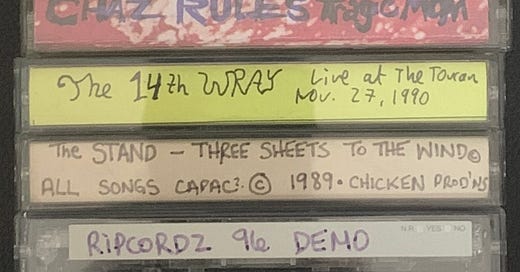 CHAZ RULES Tragic Mom
The 14th WRAY Live at The Touran
Nov. 27, 1990
The STAND - THREE SHEETS TO THE WIND ©
ALL SONGS CAPAC. © 1989 • CHICKEN PROD'NS
N.R. YES NO
RiPCORDZ 96 DEMO